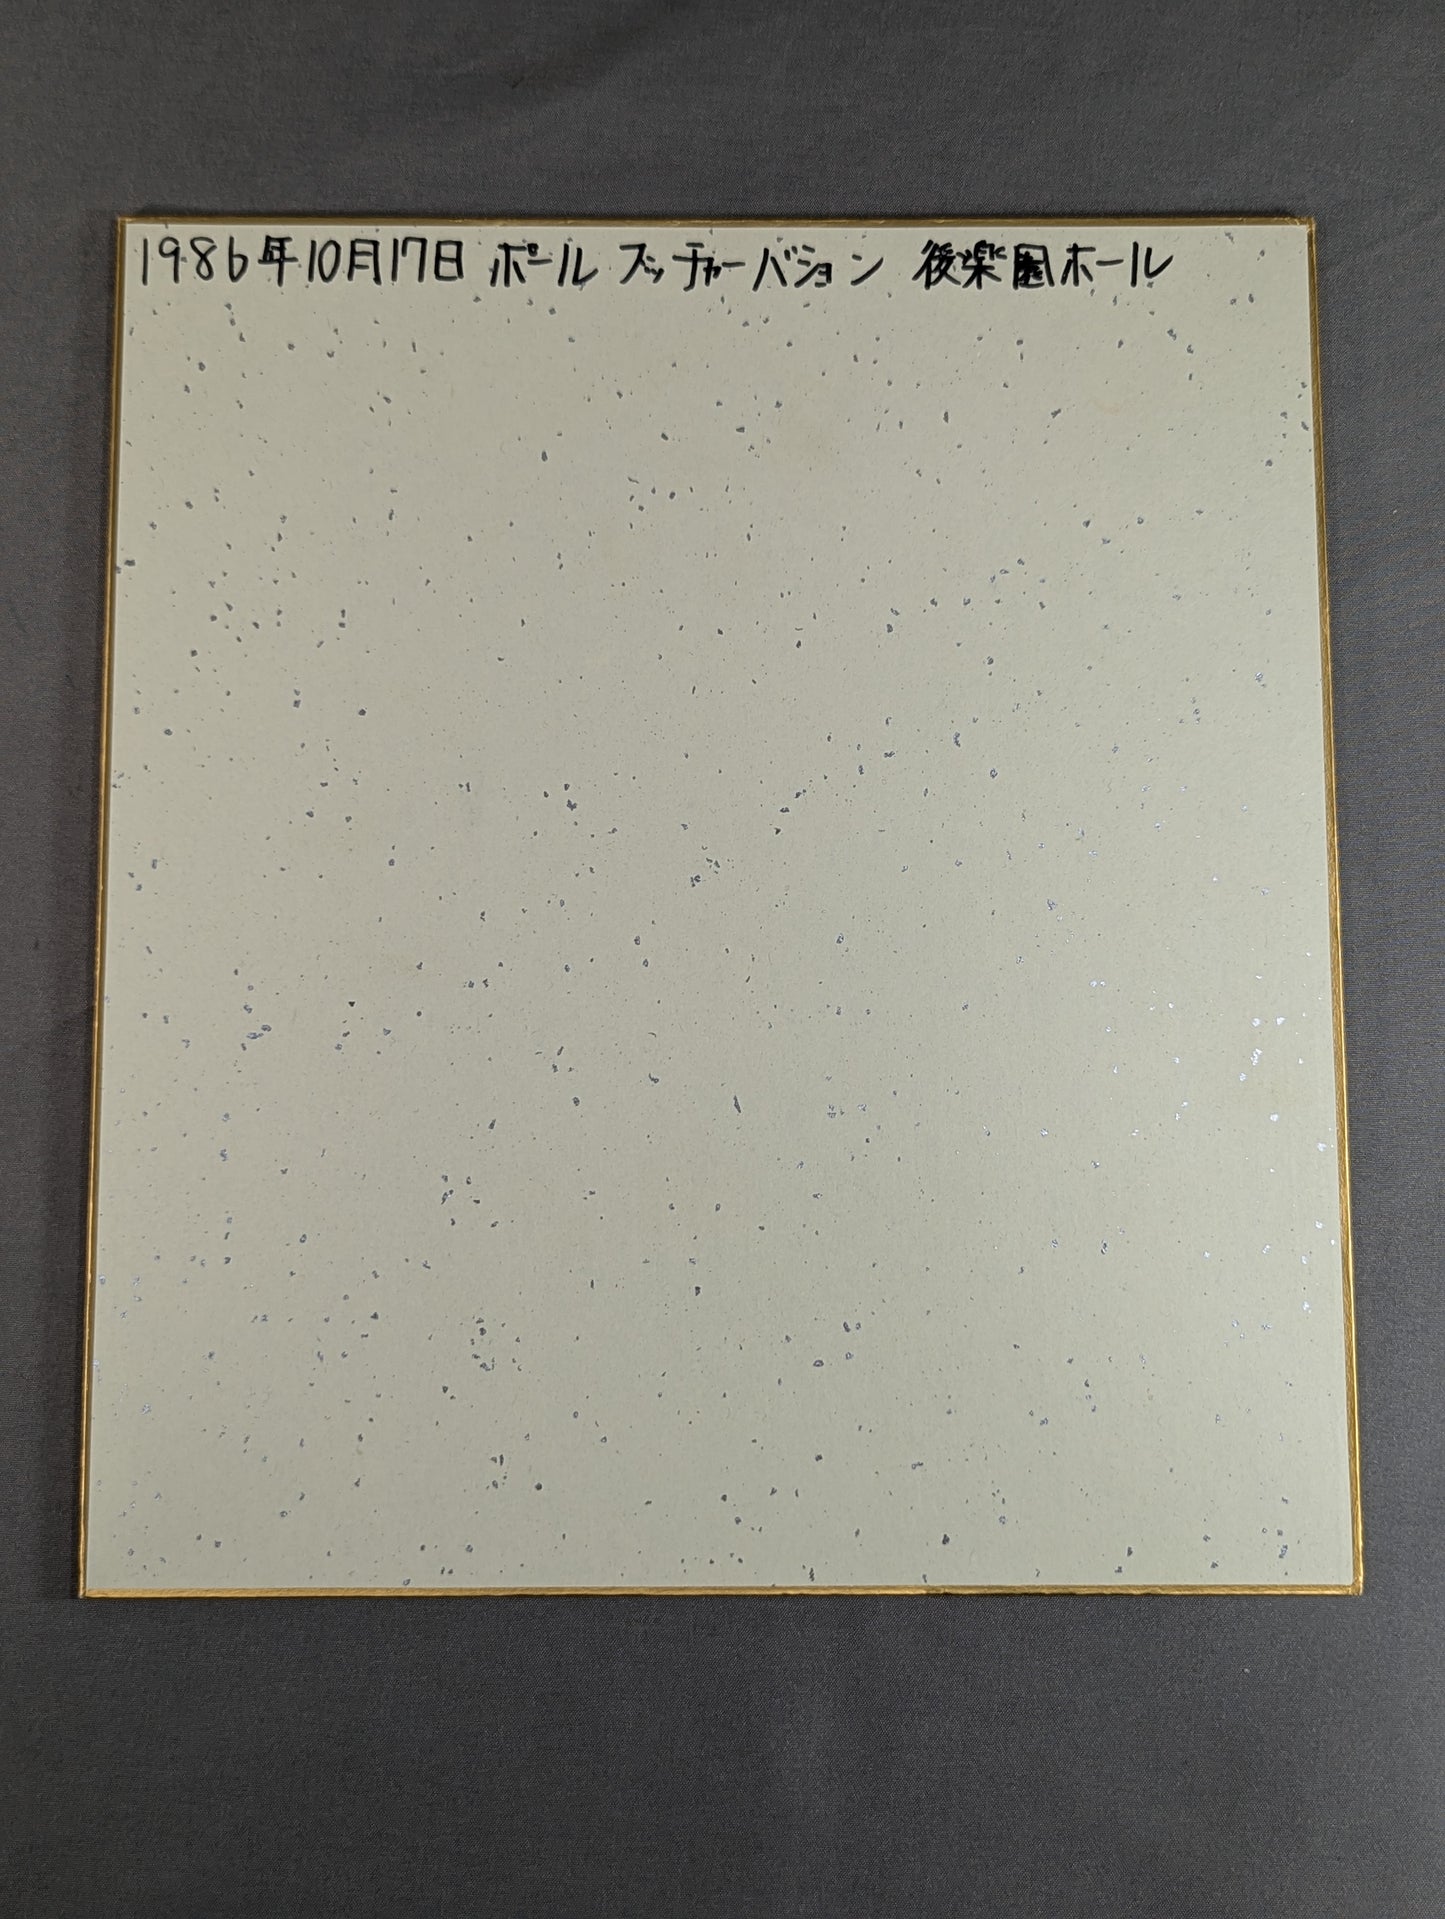 1986年10月17日 ポール ブッチャーバション 後楽園ホール